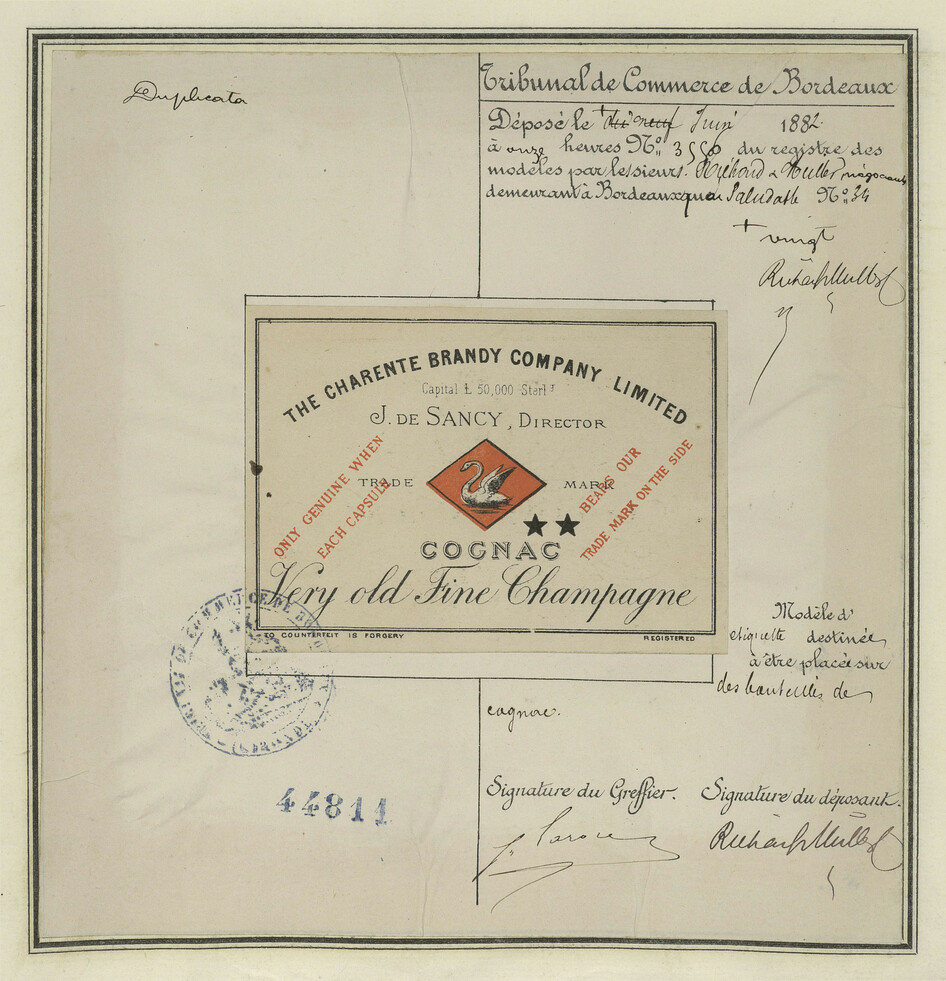 Duplicata
Tribunal de Commerce de Bordeaux
Déposé le + dix neuf Juin 1882
à onze heures No. 3558 du registre des
modèles par les sieurs. & Muller, négociants
demeurant à Bordeaux quai Paludate No. 34
+ vingt
THE CHARENTE BRANDY COMPANY LIMITED
Capital £ 50,000 Sterl
J. DE SANCY, DIRECTOR
ONLY GENUINE WHEN
EACH CAPSULE
TRADE MARK
BEARS OUR
TRADE MARK ON THE SIDE
COGNAC
Very old Fine Champagne
TO COUNTERFEIT IS FORGERY
REGISTERED
Modèle d'
etiquette destinée
à être placée sur
des bouteilles de
cognac.
COMMERCE DE
(GIRONDE)
44811
Signature du Greffier. Signature du déposant.